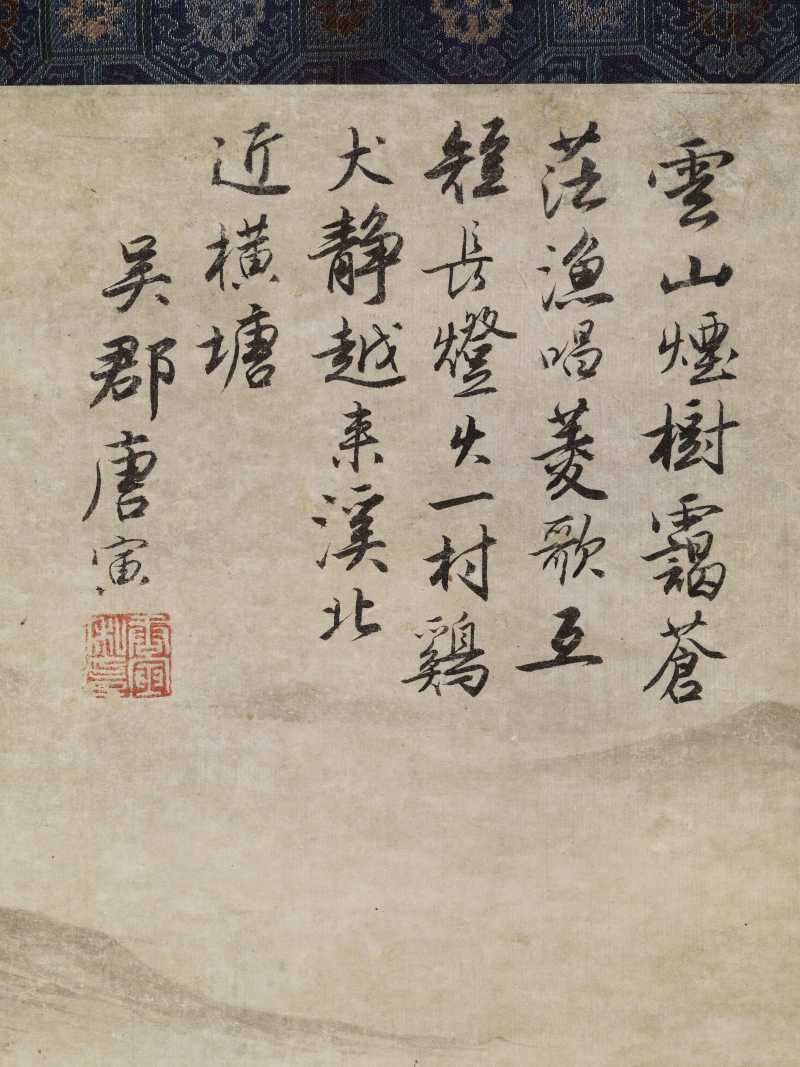 雲山煙樹靄蒼
茫漁唱菱歌互
短長燈火一村鷄
犬靜越来溪北
近橫塘
吳郡唐寅